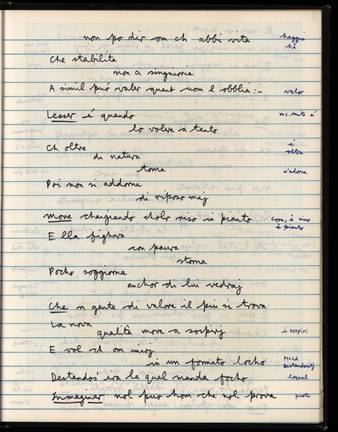 non po dir om ch abbi vita haggia
Che stabilita
non a singnioria
A simil può valer quant nom l obblia :- valor
Lesser é quando
lo volere a tento
Ch oltre è oltra
di natura
torna
Poi non si addorna s'adorna
di riposo maj
Move changiando cholo riso in pianto riso
E lla fighura
con paura
storna
Pocho soggiorna
anchor di lui vedraj
Che n gente di valore il piu si trova
La nova
qualità move a sospirj i sospiri
E vol ch om mirj
in un formato locho
Destandos ira la qual manda focho
Inmaginar nol puo hom che nol prova